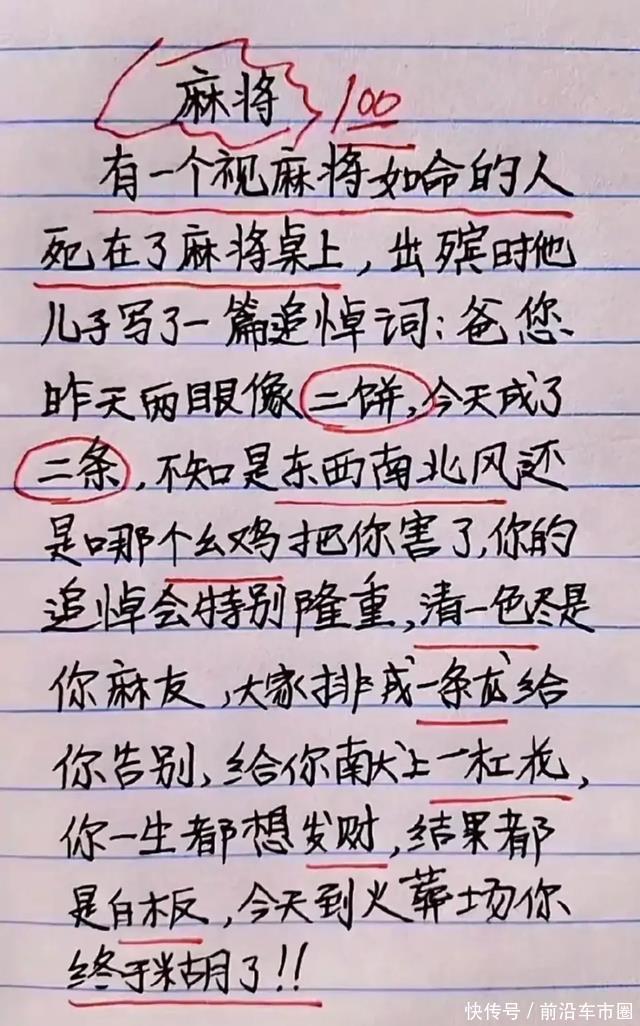 麻将 100
有一个视麻将如命的人
死在了麻将桌上，出殡时他
儿子写了一篇追悼词：爸您
昨天两眼像二饼，今天成了
二条，不知是东西南北风还
是哪个幺鸡把你害了，你的
追悼会特别隆重，清一色尽是
你麻友，大家排成一条龙给
你告别，给你献上一杠花，
你一生都想发财，结果都
是白板，今天到火葬场你
终于糊了!!
快传号/前沿车市圈